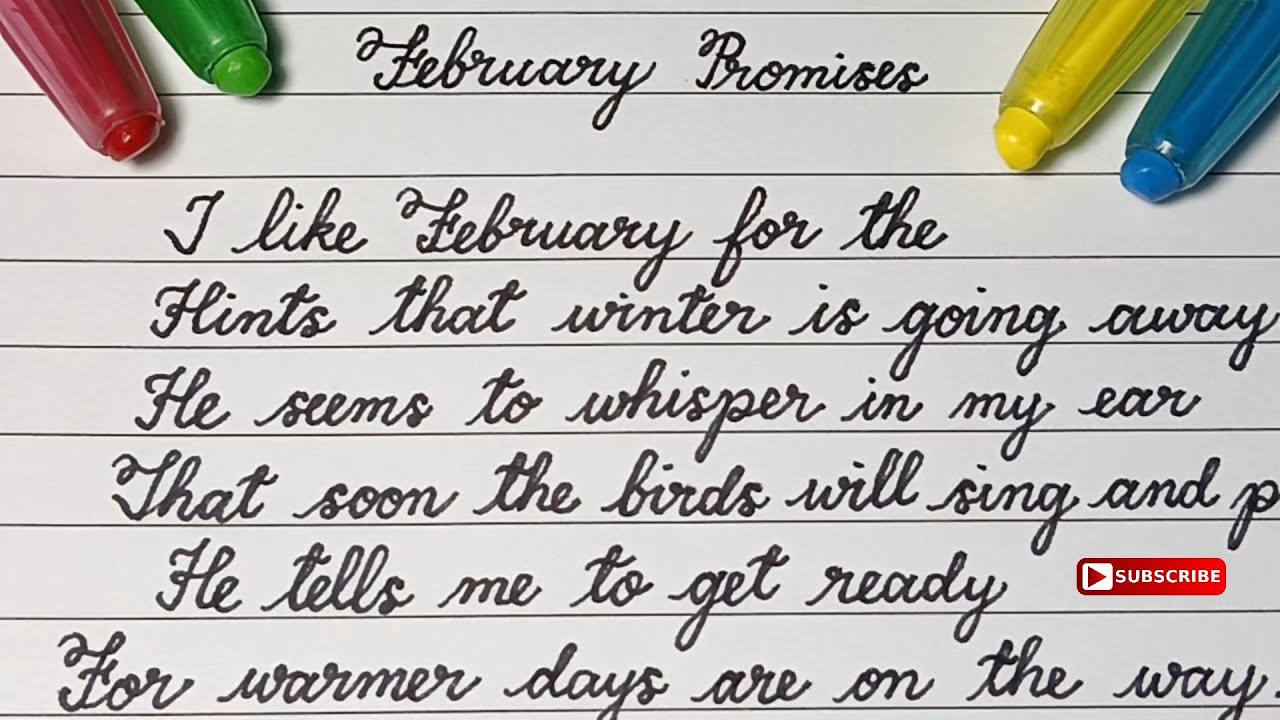 February Promises
I like February for the
Hints that winter is going away
He seems to whisper in my ear
That soon the birds will sing and p
He tells me to get ready
SUBSCRIBE
For warmer days are on the way.